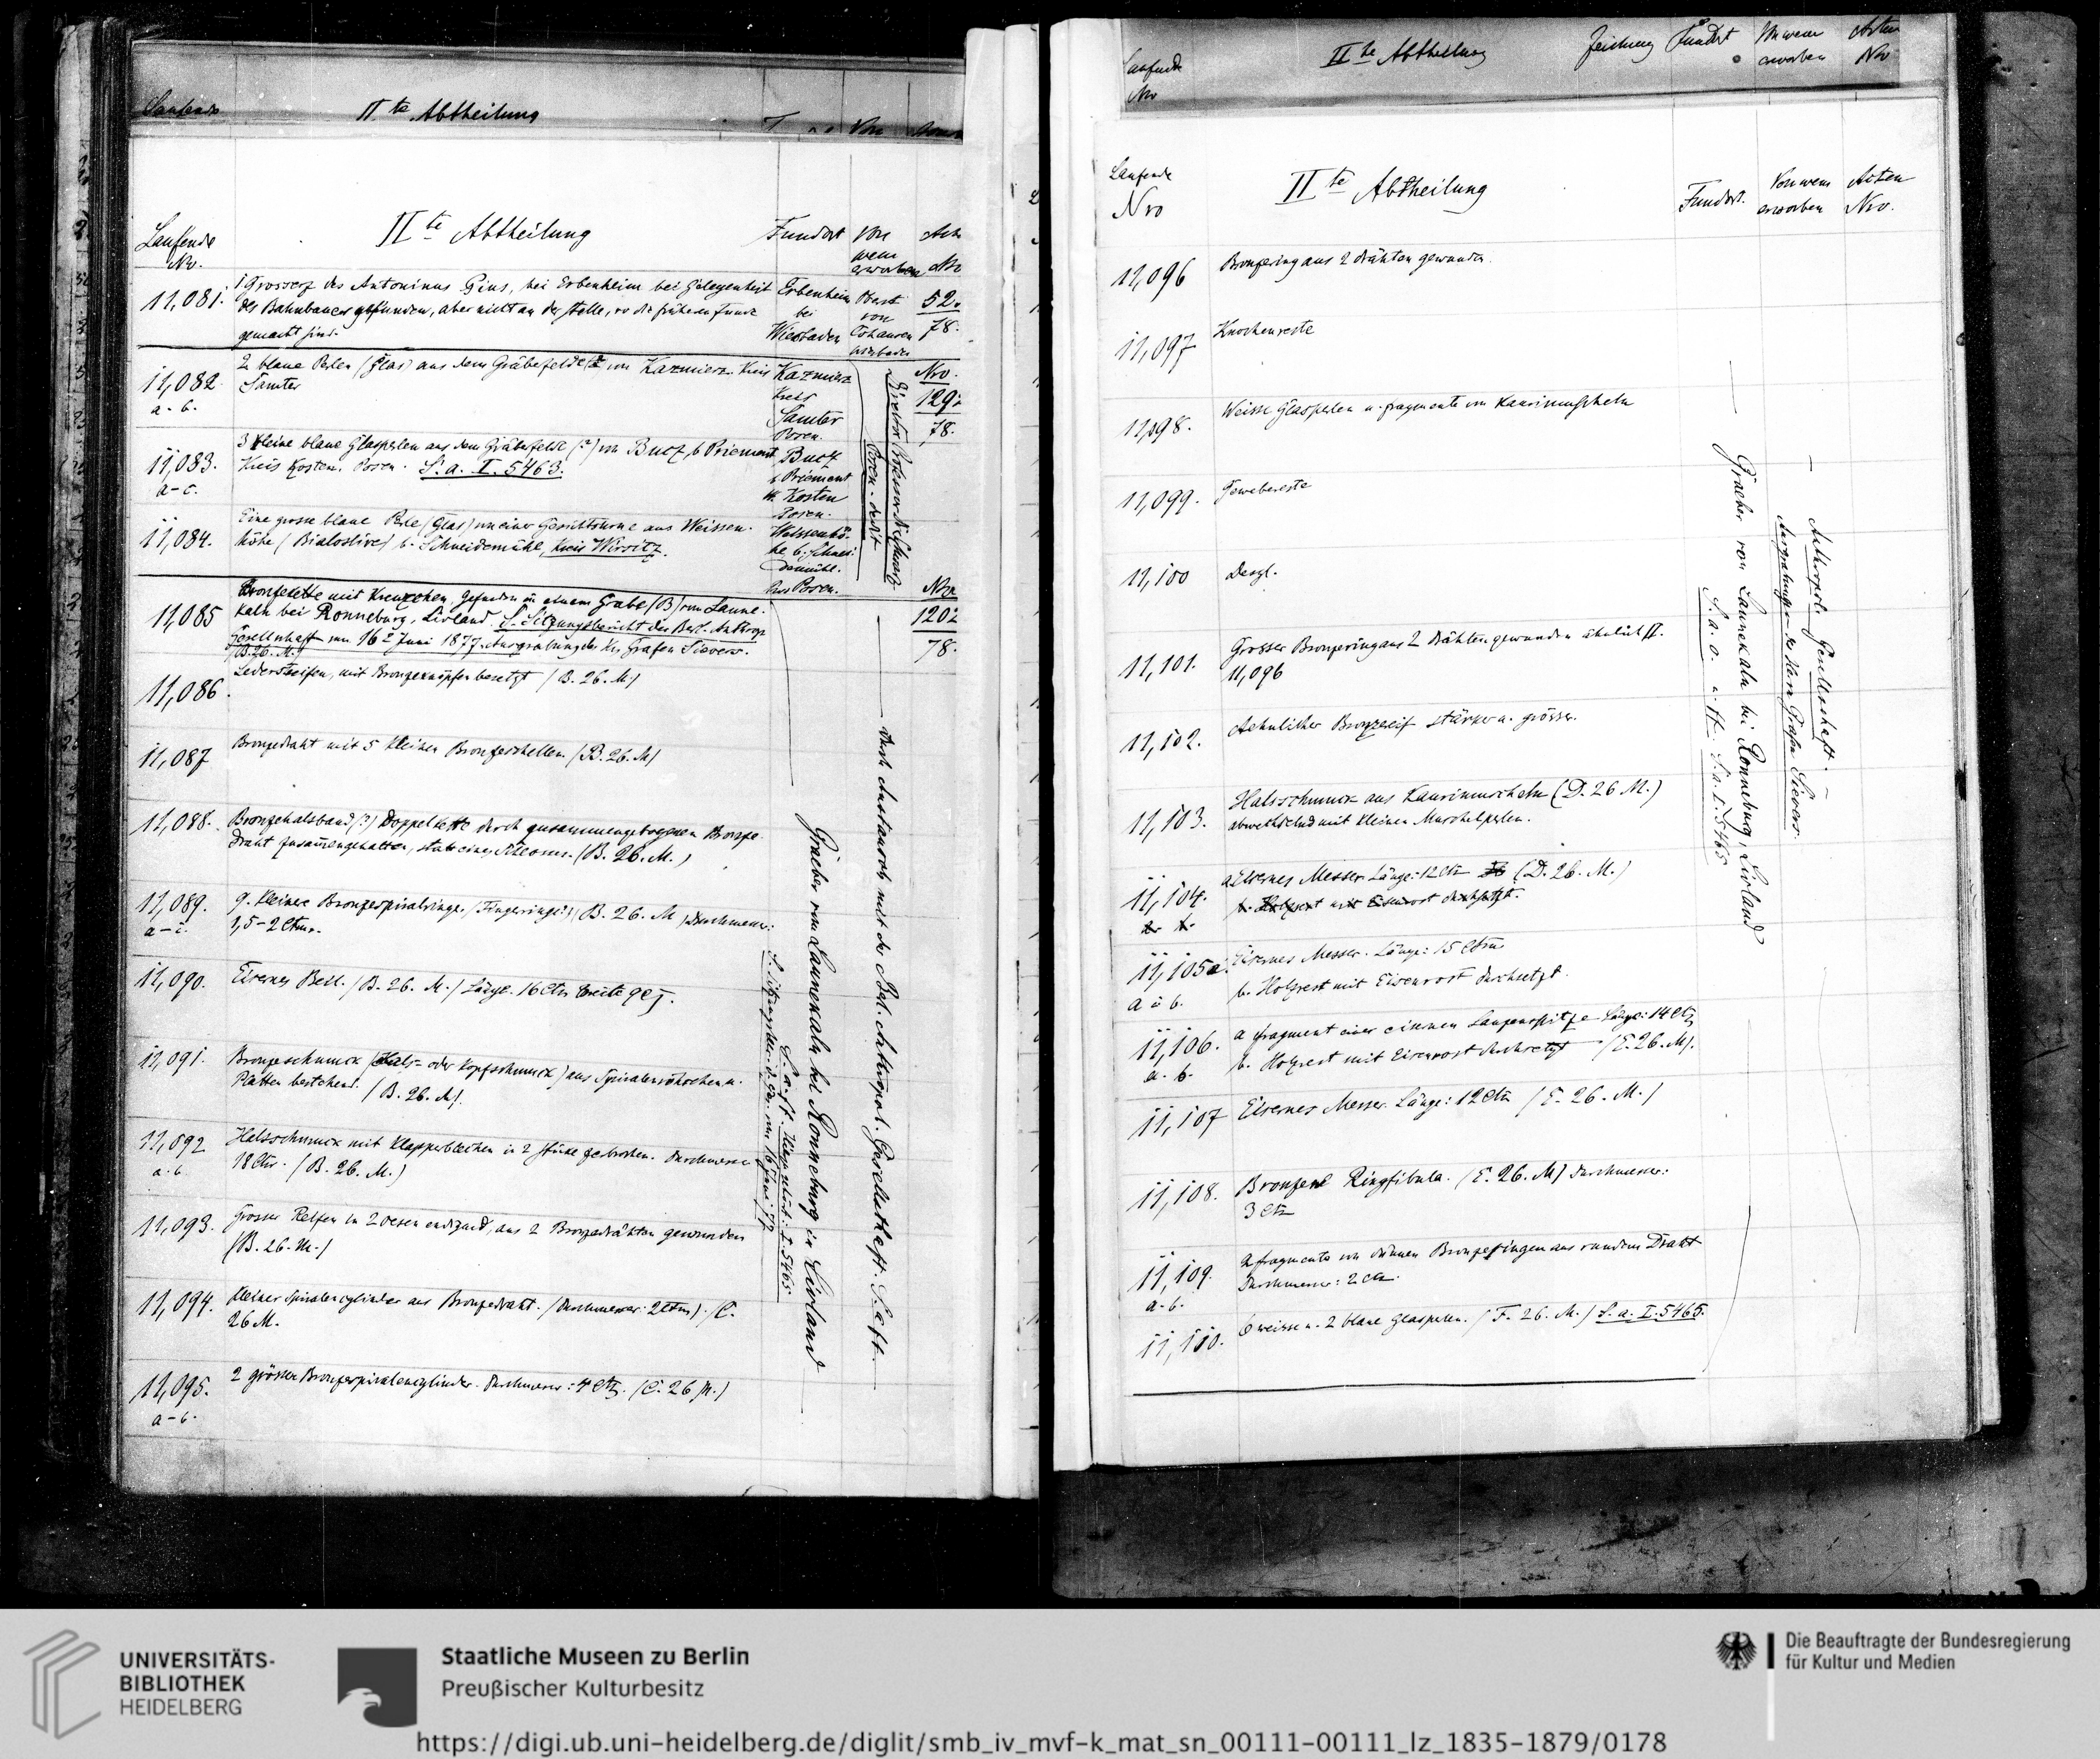 Laufende
IIte Abtheilung
Laufende
No.
IIte Abtheilung
Fundort
Von
wem
erworben
11,081.
1 Grosserz des Antoninus Pius, bei Erbenheim bei Gelegenheit
des Bahnbaues gefunden, aber nicht an der Stelle, wo die früheren Funde
gemacht sind.
Erbenheim
bei
Wiesbaden
Oberst
von
Cohausen
Wiesbaden
52.
78.
11,082
a-b.
2 blaue Perlen (Glas) aus dem Gräberfelde von Kazmierz Kreis
Samter
Kazmierz
Kreis
Samter
Posen.
Nro.
129:
78.
11,083.
a-c.
3 kleine blaue Glasperlen aus dem Gräberfelde (?) von Bucz b Priement
Kreis Kosten. Posen. S. a. I. 5463.
Bucz
b Priement
Kr Kosten
Posen.
11,084.
Eine grosse blaue Perle (Glas) von einer Gesichtsurne aus Weissen-
höhe (Bialosliwe) b. Schneidemühl, Kreis Wirsitz.
Weissenhö-
he b. Schnei-
demühl.
Posen.
Direktor Professor Schwarz
Posen.
11,085
Bronzekette mit Kreuzchen, gefunden in einem Grabe (B) von Laune-
kaln bei Ronneburg, Livland. S. Sitzungsbericht der Berl. Anthrop.
Gesellschaft vom 16t Juni 1877. Ausgrabung des Hrn Grafen Sievers.
(B. 26. M.)
120:
78.
11,086.
Lederstreifen, mit Bronzeknöpfen besetzt (B. 26. M.)
11,087
Bronzedraht mit 5 kleinen Bronzeschellen (B. 26. M)
11,088.
Bronzehalsband (?) Doppelkette durch zusammengebogenen Bronze-
draht zusammengehalten, statt eines Schlosses. (B. 26. M.)
11,089.
a-i.
9. kleinere Bronzespiralringe. (Fingerringe?) (B. 26. M) Durchmesser:
1,5-2 Ctm.
11,090.
Eisernes Beil. (B. 26. M.) Länge. 16 Ctm Breite 9 Ctm.
11,091.
Bronzeschmuck (Hals- oder Kopfschmuck) aus Spiralenröhrchen u.
Platten bestehend. (B. 26. M).
11,092
a. b.
Halsschmuck mit Klapperblechen in 2 Stücke zerbrochen. Durchmesser
18 Ctm. (B. 26. M.)
11,093.
Grosser Reifen in 2 Oesen endigend, aus 2 Bronzedrähten gewunden
(B. 26. M.)
11,094.
Kleiner Spiralencylinder aus Bronzedraht. (Durchmesser: 2 Ctm). (C.
26 M.
11,095.
a-b.
2 grössere Bronzespiralencylinder. Durchmesser: 4 Ctm. (C. 26 M.)
S. Sitzungsber. d. Ges. vom 16 Juni 77
S. a. ff. Hierzu gehört: I. 5465.
Graeber von Launekaln bei Ronneburg in Livland
durch Austausch mit der Berl. Anthropol. Gesellschaft. S. a. ff.
Laufende
Nro
IIte Abtheilung
Zeichnung
Fundort
Von wem
erworben
Acten
No
Laufende
Nro
IIte Abtheilung
Fundort.
Von wem
erworben
Acten
Nro.
11,096
Bronzering aus 2 Drähten gewunden.
11,097
Knochenreste
11,098.
Weisse Glasperlen u. Fragmente von Kaurimuscheln
11,099.
Gewebereste
11,100
Desgl.
11,101.
Grosser Bronzering aus 2 Drähten gewunden ähnlich II.
11,096
11,102.
Aehnlicher Bronzereif stärker u. grösser.
11,103.
Halsschmuck aus Kaurimuscheln (D. 26 M.)
abwechselnd mit kleinen Muschelperlen.
11,104.
a. b.
a Eisernes Messer. Länge: 12 Ctm (D. 26. M.)
b. Holzrest mit Eisenrost durchsetzt.
11,105a.
a u b.
Eisernes Messer. Länge: 15 Ctm
b. Holzrest mit Eisenrost durchsetzt.
11,106.
a. b.
a Fragment einer eisernen Lanzenspitze Länge: 14 Ctm
b. Holzrest mit Eisenrost durchsetzt (E. 26. M).
11,107
Eisernes Messer. Länge: 12 Ctm (E. 26. M.)
11,108.
Bronzene Ringfibula. (E. 26. M) Durchmesser:
3 Ctm
11,109.
a-b.
2 Fragmente von dünnen Bronzeringen aus rundem Draht
Durchmesser: 2 Ctm.
11,110.
6 weisse u. 2 blaue Glasperlen. (F. 26. M.) S. a. I. 5465.
Graeber von Launekaln bei Ronneburg, Livland
S. a. o. u. ff. S. a. I. 5465
Anthropol. Gesellschaft.
Ausgrabungen des Herrn Grafen Sievers.
UNIVERSITÄTS-
BIBLIOTHEK
HEIDELBERG
Staatliche Museen zu Berlin
Preußischer Kulturbesitz
Die Beauftragte der Bundesregierung
für Kultur und Medien
https://digi.ub.uni-heidelberg.de/diglit/smb_iv_mvf-k_mat_sn_00111-00111_lz_1835-1879/0178